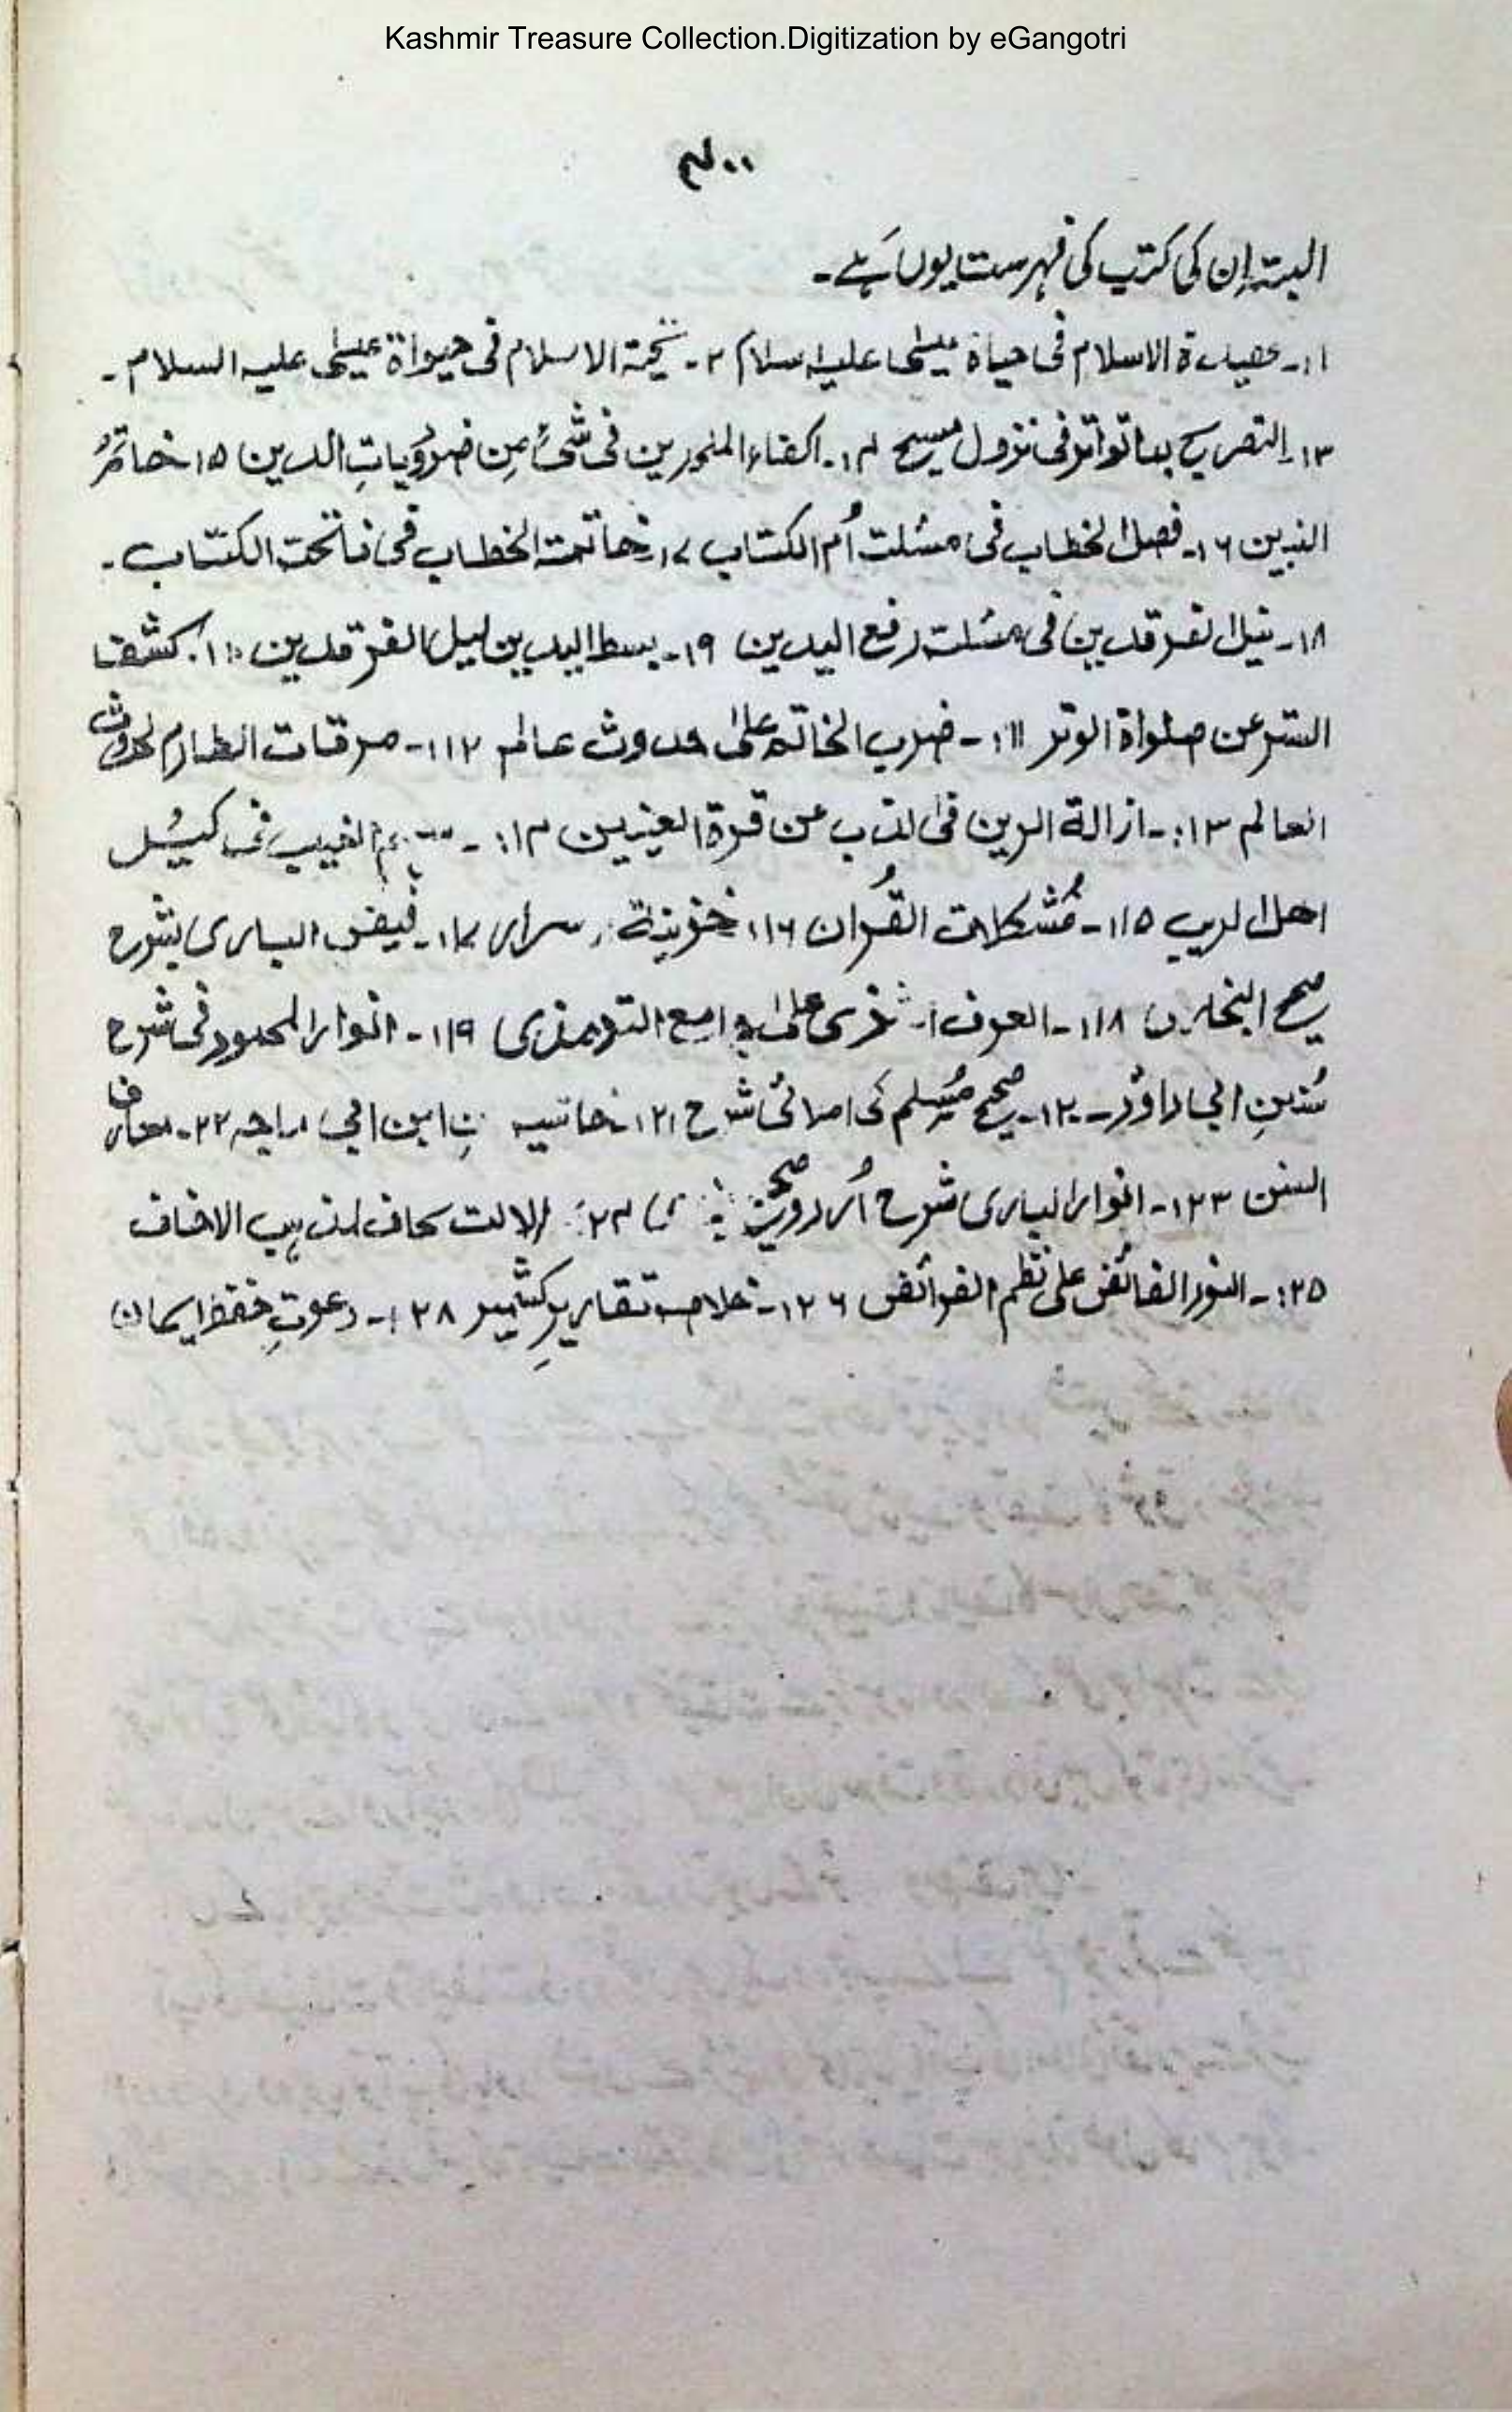 Kashmir Treasure Collection.Digitization by eGangotri
۴۰۰
البتہ اِن کی کتب کی فہرست یوں ہَے۔
۱۱۔ عقیدۃ الاسلام فی حیاۃ عیسٰی علیہ سلام ۲۔ تحیۃ الاسلام فی حیواۃ عیسٰی علیہ السلام۔
۱۳۔ التصریح بماتواتر فی نزول مسیح ۱۴۔ اکفاء الملحدین فی شیٔ مِن ضرُوریاتِ الدین ۱۵ خاتمُ
النبین ۱۶۔ فصل الخطاب فی مسٔلت اُم الکتاب ۱۷ خاتمۃ الخطاب فی فاتحۃ الکتاب۔
۱۸۔ نیل الفرقدین فی مسٔلتہ رفع الیدین ۱۹۔ بسط الیدین لیل الفرقدین ۱۱۰. کشف
الستر عن صلواۃ الوتر ۱۱۱۔ ضرب الخاتم علیٰ حدوث عالم ۱۱۲۔ مرقات الطارم لحدوث
العالم ۱۱۳۔ ازالۃ الرین فی الذب عن قرۃ العینین ۱۱۴۔ الغیب فی کیسُل
اھل الریب ۱۱۵۔ مُشکلات القُران ۱۱۶ خزینۃ سرار ۱۱۷۔ فیض الباری بشرح
صحیح البخاری ۱۱۸۔ العرف شذی علیٰ جامع الترمذی ۱۱۹۔ انوار المحمود فی شرح
سُننِ ابی داؤد۔ ۱۲۰۔ صحیح مُسلم کی املائی شرح ۱۲۱ حاشیہ ابن ابی ماجہ ۲۲۔ معارف
السنن ۱۲۳۔ انوار الباری شرح اُردو صحیح ۲۴: الاتحاف لمذہب الاخاف
۱۲۵۔ النور الفائض علی نظم الفرائض ۱۲۶۔ خلاصہ تقاریرِ کشمیر ۱۲۸۔ دعوتِ حفظ ایمان